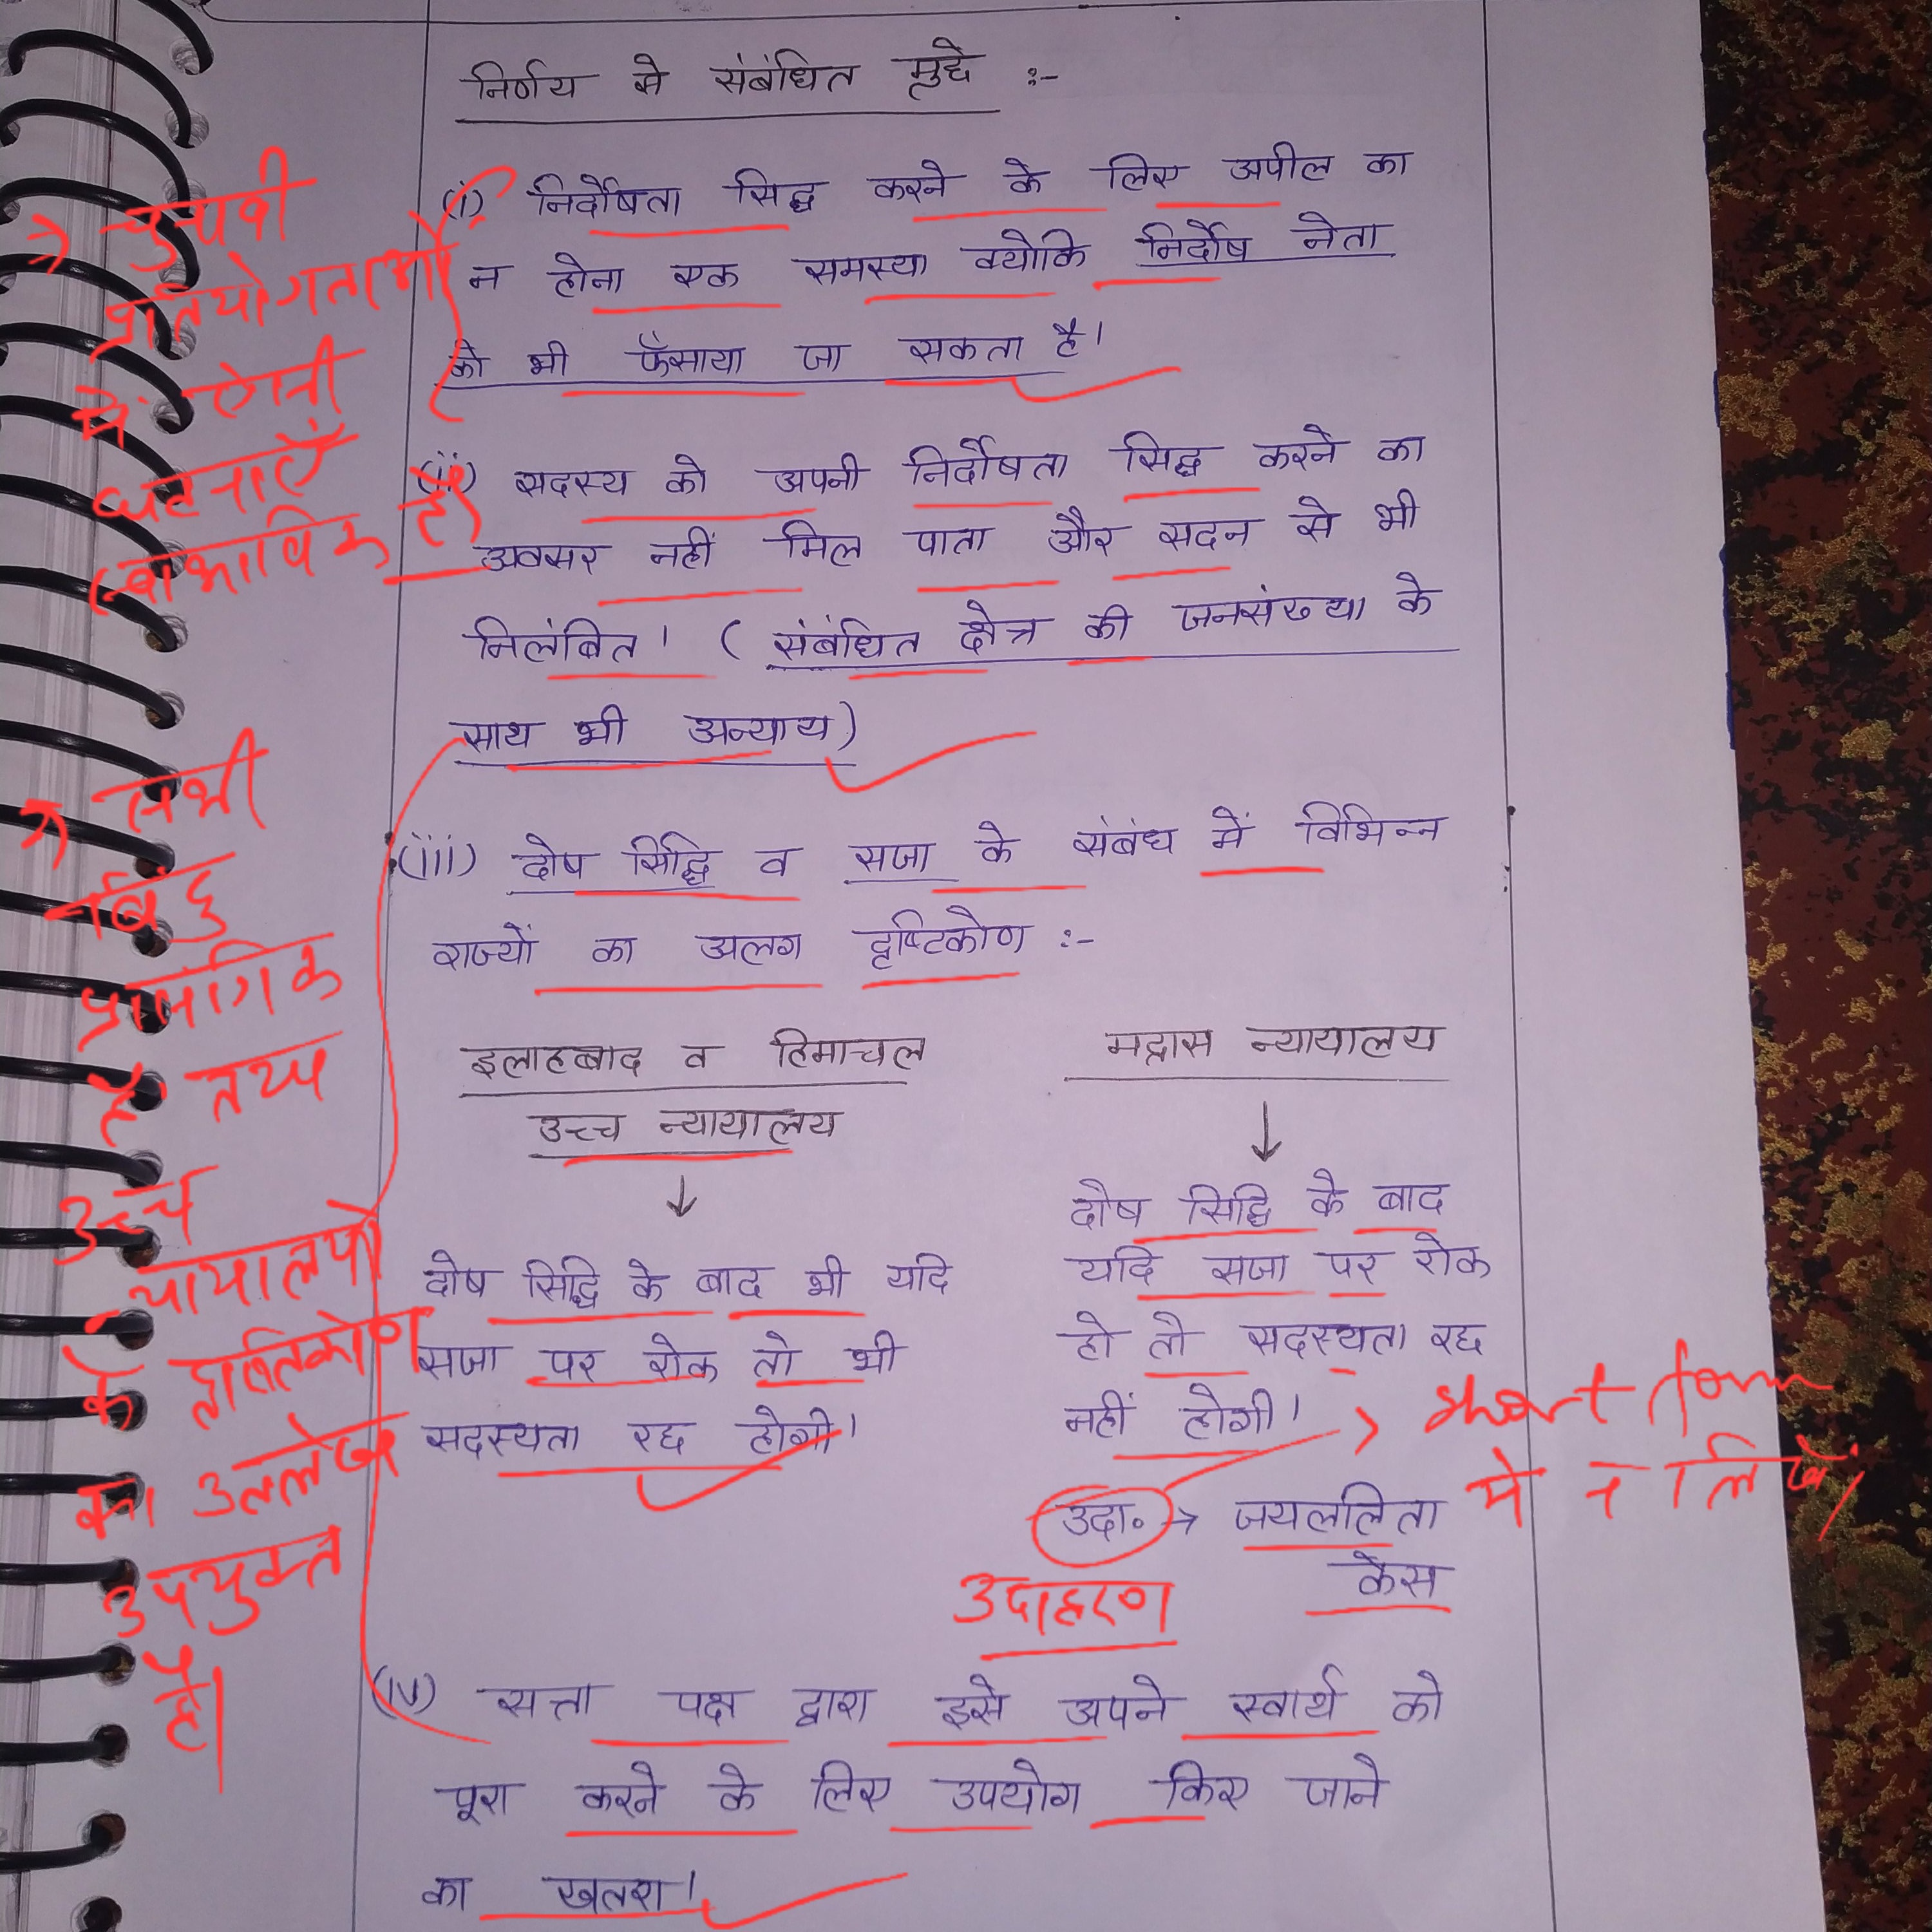 निर्णय से संबंधित मुद्दे :-
(i) निर्दोषता सिद्ध करने के लिए अपील का
न होना एक समस्या क्योंकि निर्दोष नेता
को भी फँसाया जा सकता है।
(ii) सदस्य को अपनी निर्दोषता सिद्ध करने का
अवसर नहीं मिल पाता और सदन से भी
निलंबित। (संबंधित क्षेत्र की जनसंख्या के
साथ भी अन्याय)
(iii) दोष सिद्धि व सजा के संबंध में विभिन्न
राज्यों का अलग दृष्टिकोण :-
इलाहबाद व हिमाचल
उच्च न्यायालय
↓
दोष सिद्धि के बाद भी यदि
सजा पर रोक तो भी
सदस्यता रद्द होगी।
मद्रास न्यायालय
↓
दोष सिद्धि के बाद
यदि सजा पर रोक
हो तो सदस्यता रद्द
नहीं होगी।
उदा. → जयललिता
केस
उदाहरण
short form
में न लिखें।
(iv) सत्ता पक्ष द्वारा इसे अपने स्वार्थ को
पूरा करने के लिए उपयोग किए जाने
का खतरा।
→ चुनावी
प्रतियोगिताओं
में ऐसी
घटनाएँ
स्वाभाविक हैं।
→ सभी
बिंदु
प्रासंगिक
हैं तथा
उच्च
न्यायालयों
के दृष्टिकोण
का उल्लेख
उपयुक्त
है।